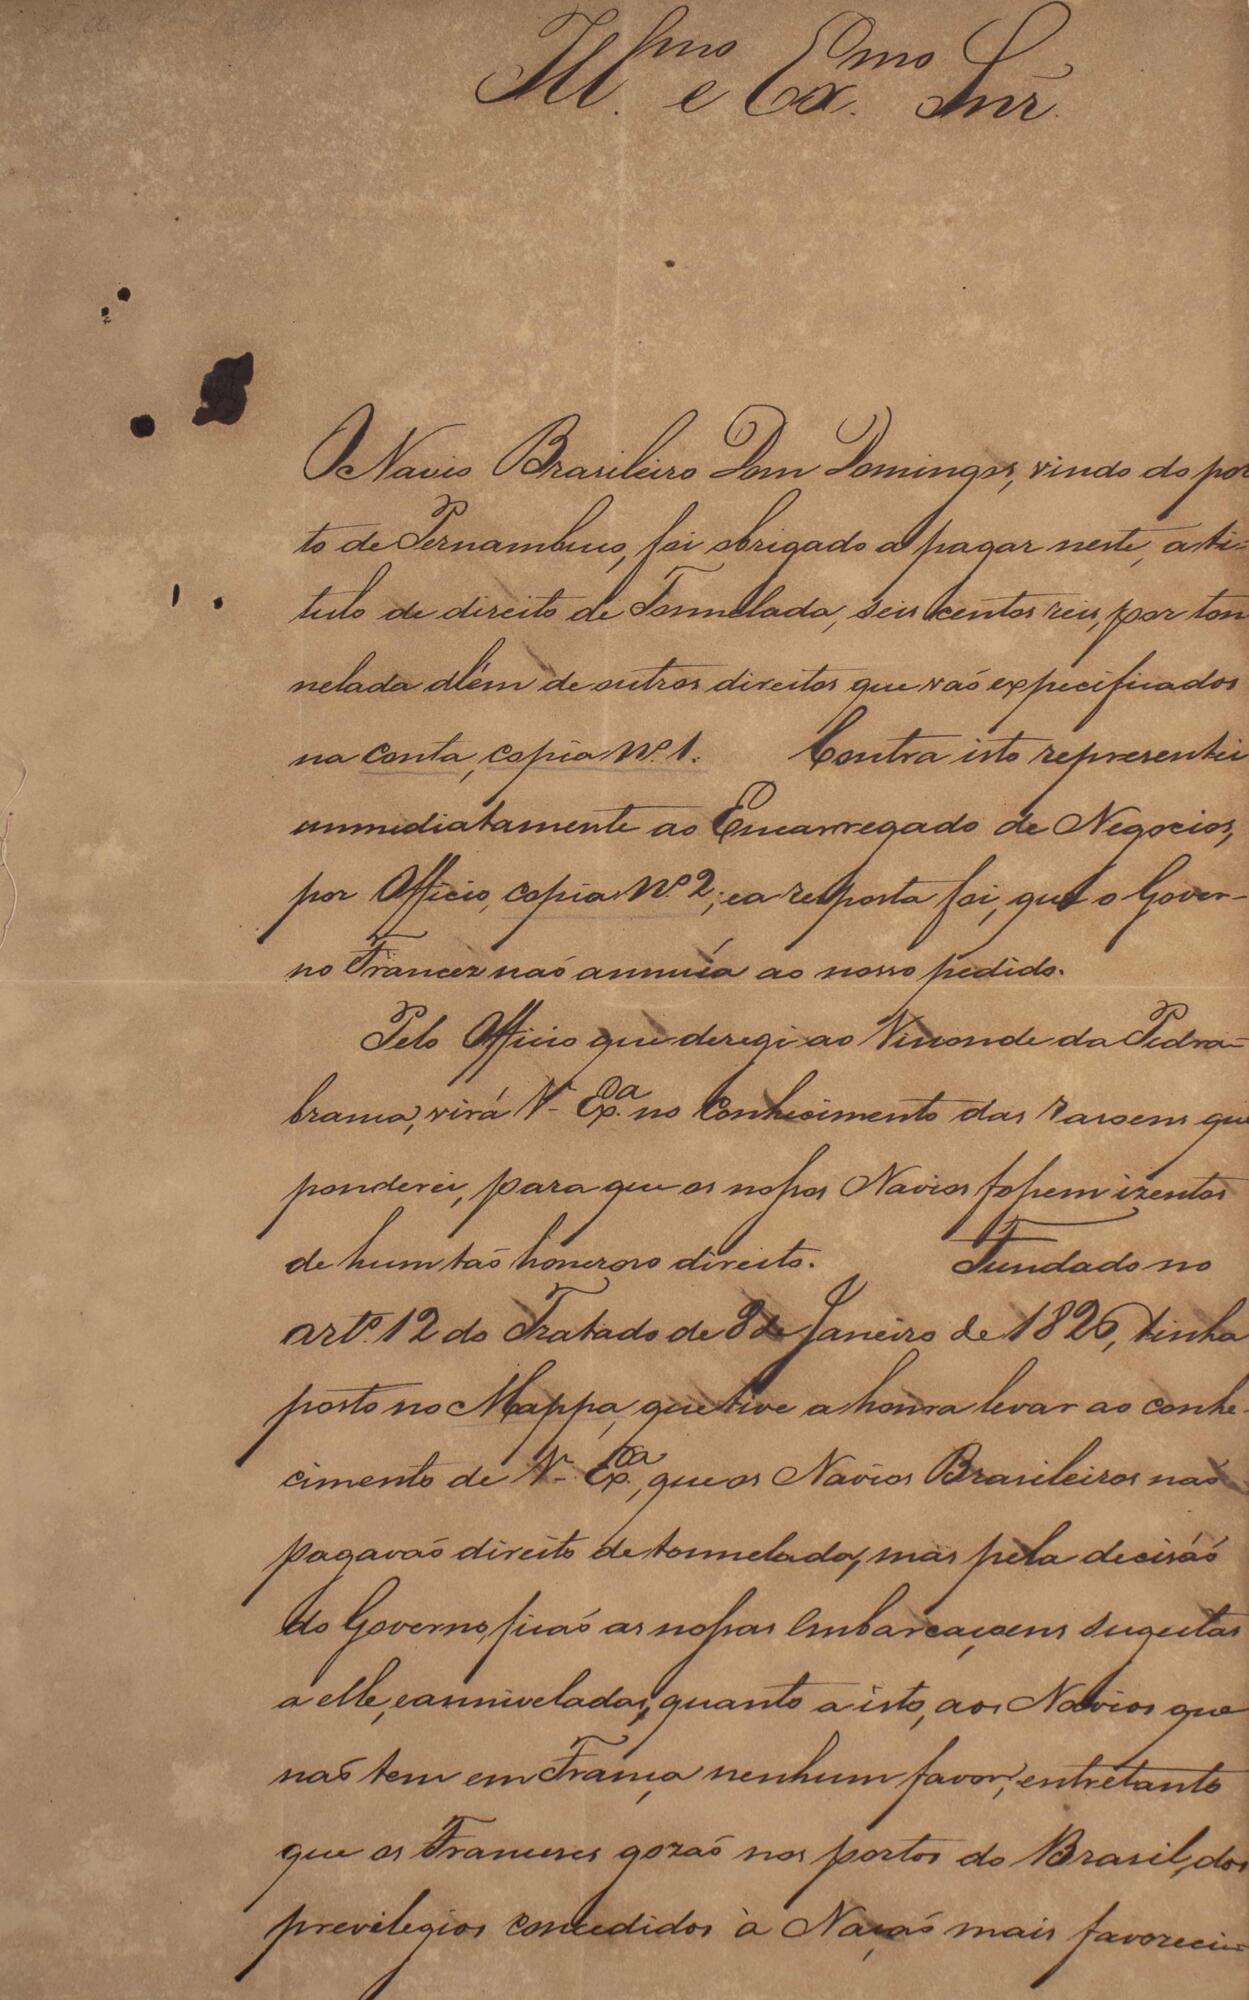 Ill.mo e Ex.mo Snr.
O Navio Brasileiro Dom Domingos, vindo do por
to de Pernambuco, foi obrigado a pagar neste, a ti-
tulo de direito de Tonnelada, seis centos reis, por ton
nelada além de outros direitos que vaó expecificados
na conta, copia Nº. 1. Contra isto representei
immediatamente ao Encarregado de Negocios,
por Officio, copia Nº. 2; e a resposta foi, que o Gover-
no Francez naó annuía ao nosso pedido.
Pelo Officio que deregi ao Visconde da Pedra-
branca, virá V. Ex.a no Conhecimento das rasoens que
ponderei, para que os nossos Navios fossem izentos
de hum taó honeroso direito. Fundado no
artº. 12 do Tratado de 8 de Janeiro de 1826, tinha
posto no Mappa, que tive a honra levar ao conhe-
cimento de V. Ex.a, que os Navios Brasileiros naó
pagavaó direito de tonnelada, mas pela decisáó
do Governo, ficaó as nossas Embarcaçoens sugeitas
a elle, e anniveladas, quanto a isto, aos Navios que
naó tem em França nenhum favor, entretanto
que os Franceses gozaó nos portos do Brasil, dos
previlegios concedidos à Naçaó mais favoreci-